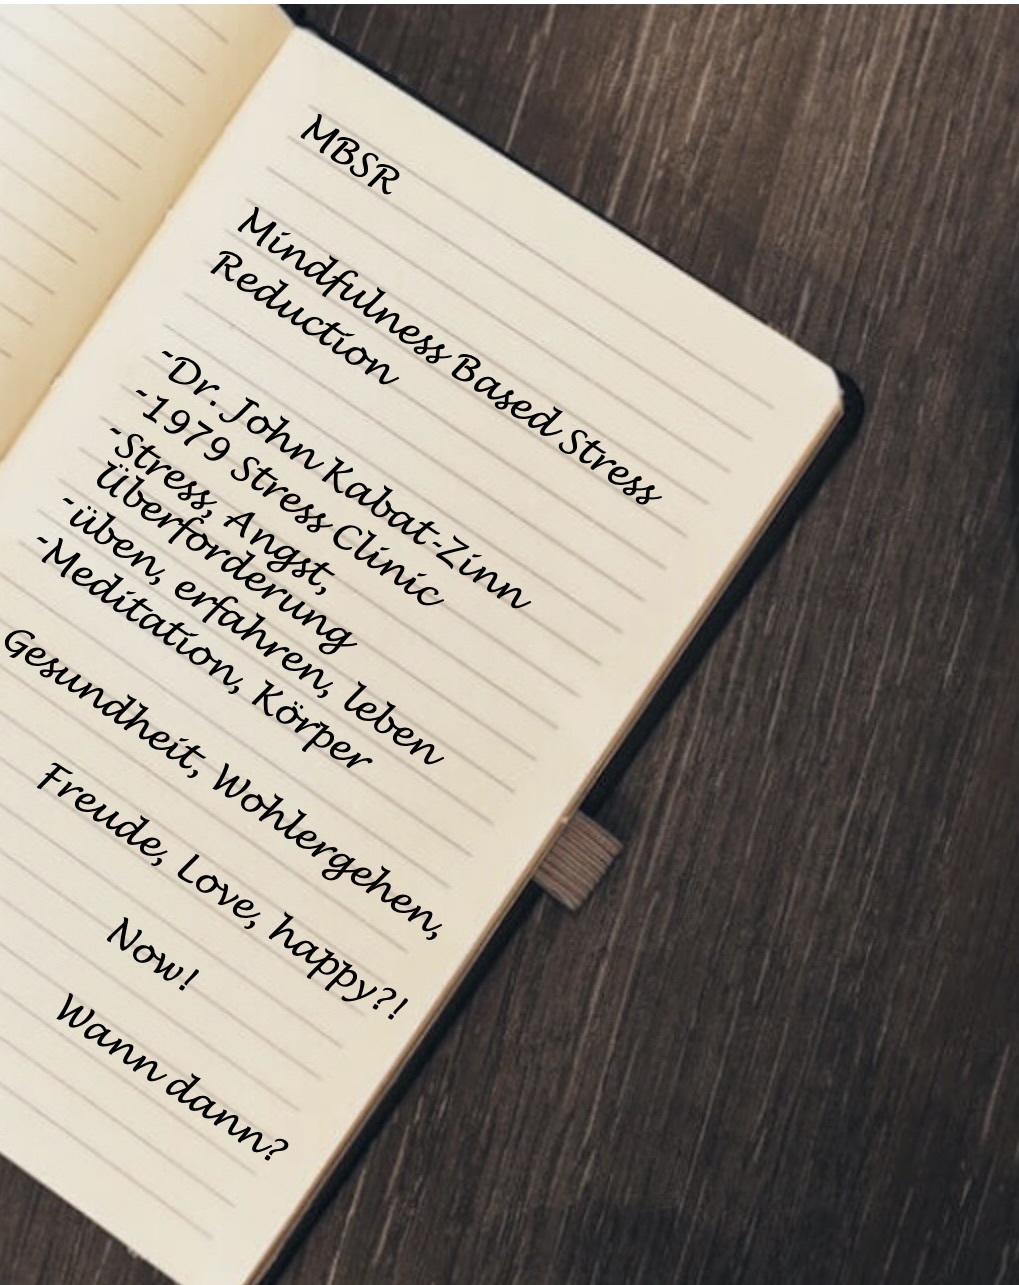 MBSR
Mindfulness Based Stress
Reduction
-Dr. John Kabat-Zinn
-1979 Stress Clinic
-Stress, Angst,
Überforderung
-üben, erfahren, leben
-Meditation, Körper
Gesundheit, Wohlergehen,
Freude, Love, happy?!
Now!
Wann dann?